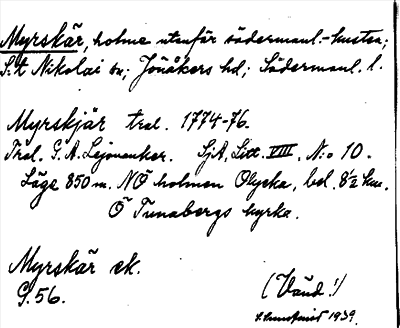 Myrskär, holme utanför södermanl.-kusten;
S:t Nikolai sn; Jönåkers hd; Södermanl. l.
Myrskjär trol. 1774-76.
Träl. G. A. Lejonanker. SjA, Litt. VIII, N:o 10.
Läge 850 m. NÖ holmen Olycka, bel. 8½ km.
Ö Tunabergs kyrka.
Myrskär ek.
G. 56.
(Vänd!)
1939.